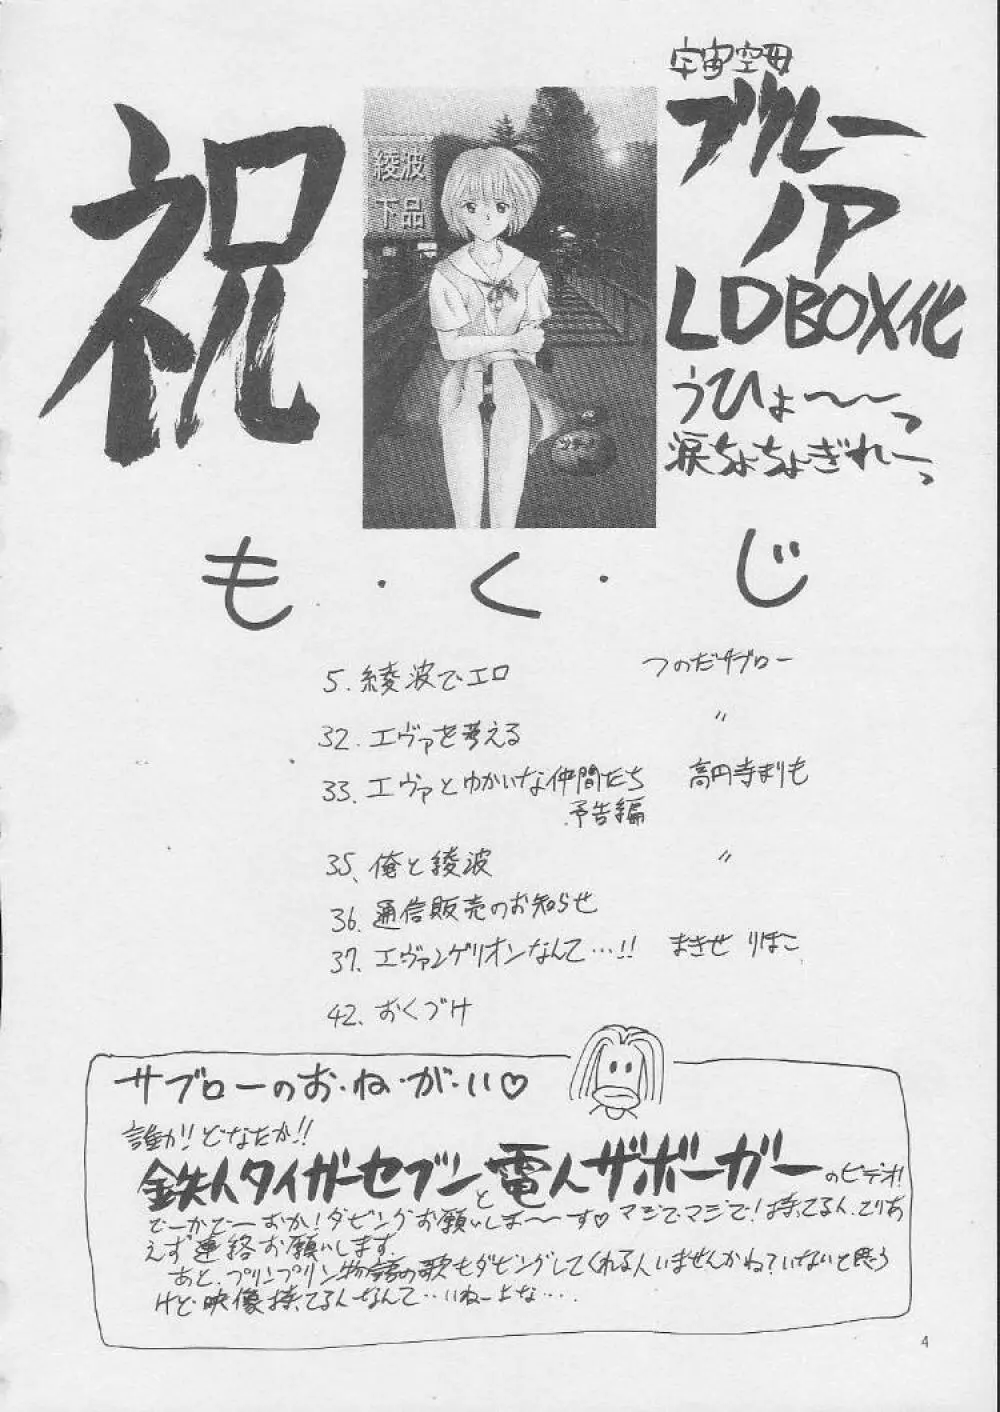 祝
綾波
下品
宇宙空母
ブルー
ノア
LD BOX化
うひょ〜〜っ
涙ちょちょぎれーっ
も・く・じ
5. 綾波でエロ つのだサブロー
32. エヴァを考える 〃
33. エヴァとゆかいな仲間たち 高円寺まりも
予告編
35. 俺と綾波 〃
36. 通信販売のお知らせ
37. エヴァンゲリオンなんて…!! まきせ りほこ
42. おくづけ
サブローのお・ね・が・い♡
誰か!! どなたか!!
鉄人タイガーセブンと電人ザボーガーのビデオ!
ダビングお願いしま〜〜す♡マジでマジで!持ってる人、とりあ
えず連絡お願いします。
あと、プリンプリン物語の歌もダビングしてくれる人いませんかね?いないと思う
けど・映像持ってる人なんて…いねーよな…。
4